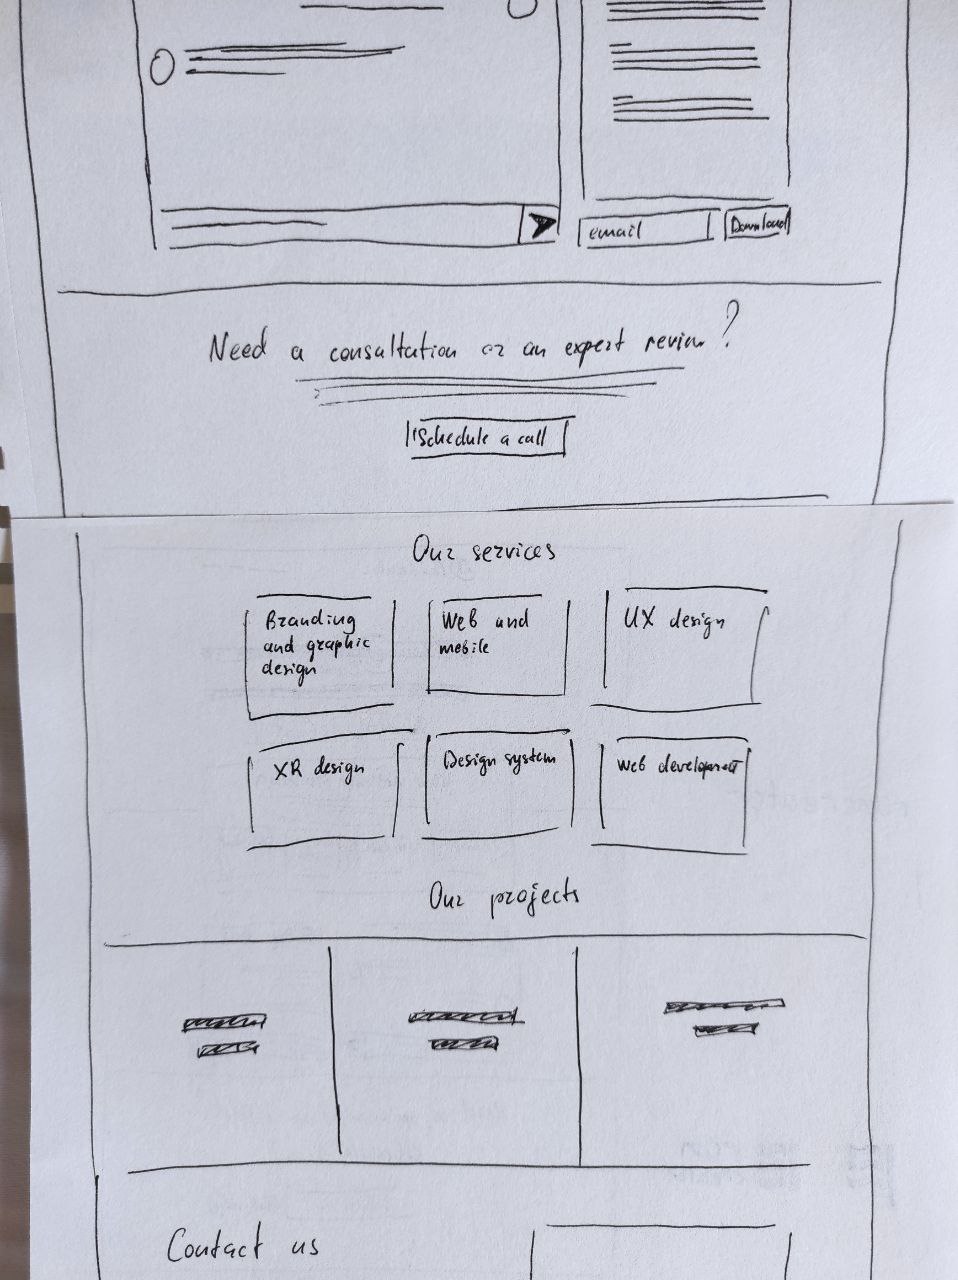 email
Download
Need a consultation or an expert review?
Schedule a call
Our services
Branding
and graphic
design
Web and
mobile
UX design
XR design
Design system
Web development
Our projects
Contact us